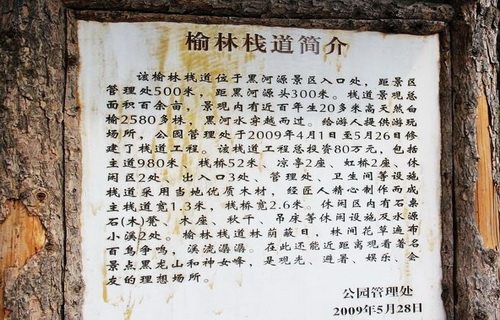 榆林栈道简介
该榆林栈道位于黑河源景区入口处，距景区
管理处500米，距黑河源头300米。栈道景观总
面积百余亩，景观内有近百年生20多米高天然白
榆2580多株，黑河水穿越而过。给游人提供游玩
场所，公园管理处于2009年4月1日至5月26日修
建了栈道工程。该栈道工程总投资80万元，包括
主道980米、栈桥52米、凉亭2座、虹桥2座、休
闲区2处、出入口3处、管理处、卫生间等设施
栈道采用当地优质木材，经匠人精心制作而成
主栈道宽1.3米，栈桥宽2.6米。休闲区内有石桌
石(木)凳、木座、秋千、吊床等休闲设施及水源
小溪2处。榆林栈道林荫蔽日，林间花草遍布
百鸟争鸣，溪流潺潺。在此还能近距离观看著名
景点黑龙山和神女峰，是观光、避暑、娱乐、会
友的理想场所。
公园管理处
2009年5月28日